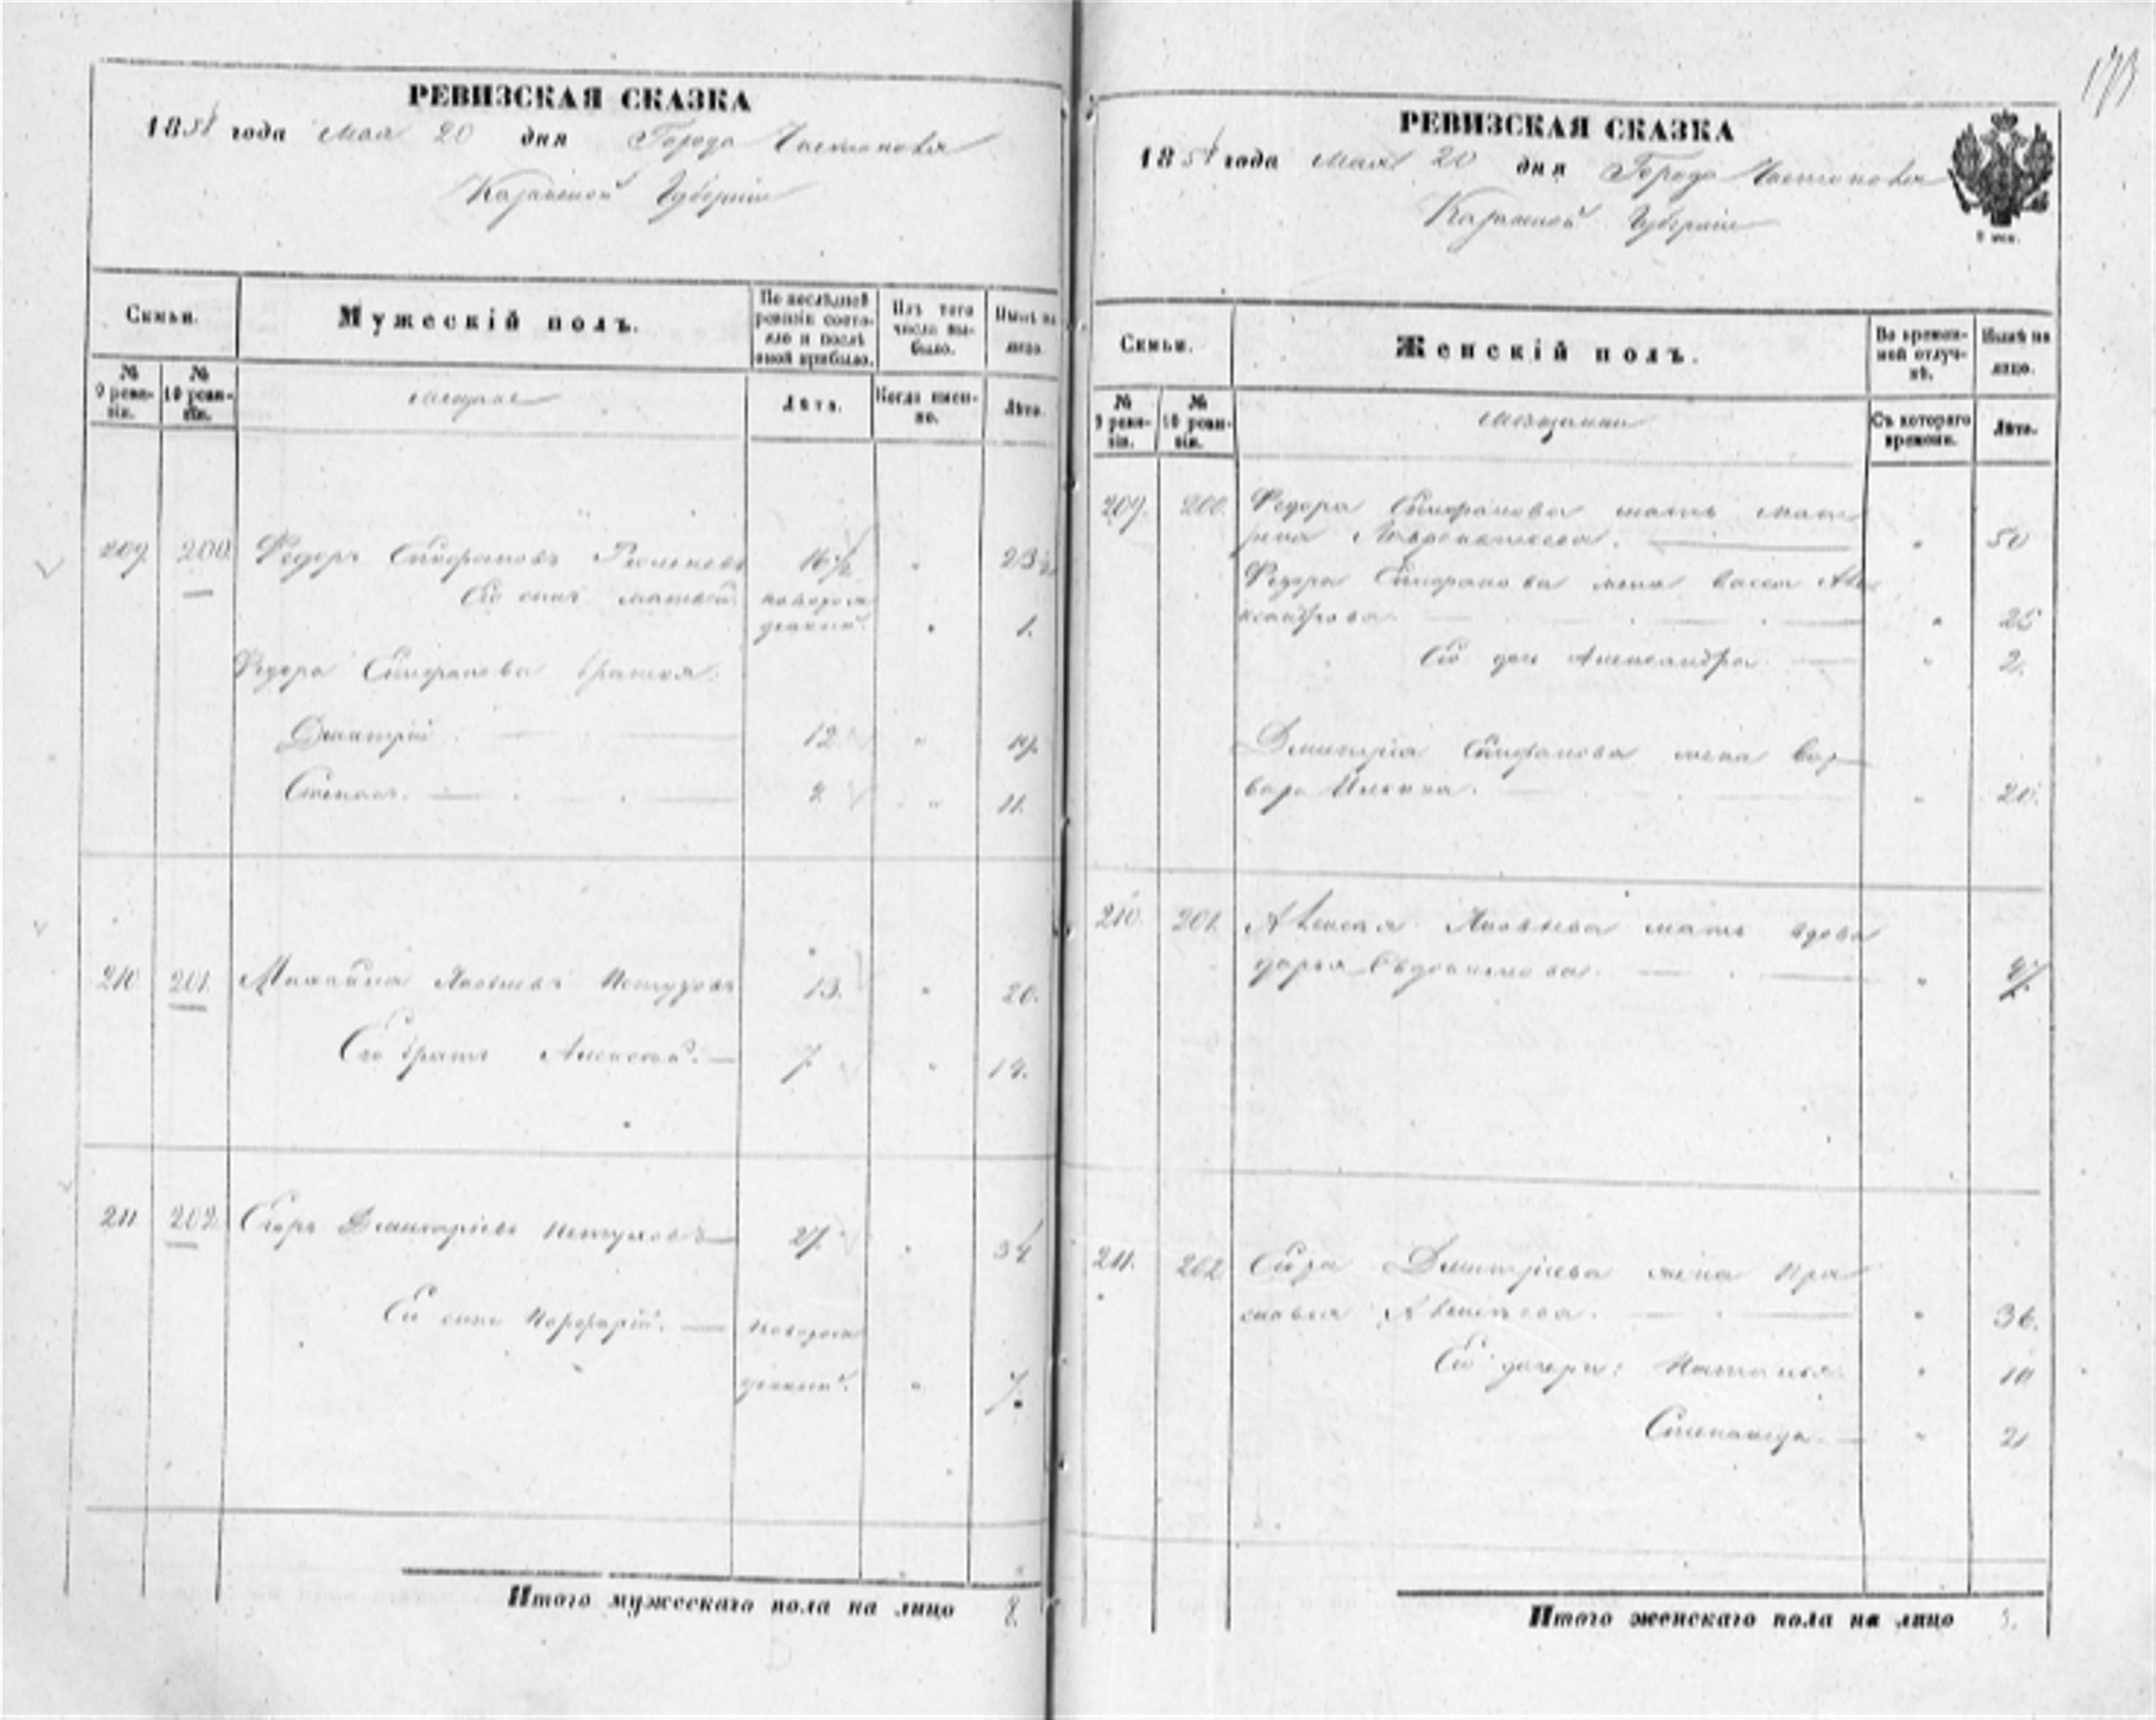 РЕВИЗСКАЯ СКАЗКА
1858 года Мая 20 дня Города Чистополя
Казанской Губернии
Семьи.
Мужескій полъ.
По послѣдней ревизіи состояло и послѣ оной прибыло.
Изъ того числа выбыло.
Нынѣ на лицо.
№ 9 ревизіи.
№ 10 ревизіи.
Мещане
Лѣта.
Когда именно.
Лѣта.
209. 200. Федоръ Стефановъ 16½ " 23½
Его сынъ Матвей. новорож
денный. " 1.
Федора Стефанова братья:
Дмитрій 12 " 19.
Степанъ. 4 " 11.
210. 201. Михайла Яковлевъ Петуховъ 13. " 20.
Его братъ Алексей. 7. " 14.
211 202. Егоръ Дмитріевъ Петуховъ 27. " 34
Его сынъ Порфирій. новорож
денный. " 7.
Итого мужескаго пола на лицо 8.
173
РЕВИЗСКАЯ СКАЗКА
1858 года Мая 20 дня Города Чистополя
Казанской Губернии
Семьи.
Женскій полъ.
Во временной отлучкѣ.
Нынѣ на лицо.
№ 9 ревизіи.
№ 10 ревизіи.
Мещанки
Съ котораго времени.
Лѣта.
209. 200. Федора Стефанова мать Мат
рена " 50
Федора Стефанова жена Васса Але
ксандрова " 25
Его дочь Александра " 2.
Дмитрія Стефанова жена Вар
вара Ильина. " 20.
210. 201. Алексея Яковлева мать вдова
Дарья Евдокимова. " 47.
211. 202 Егора Дмитріева жена Пра
сковья Алексеева. " 36.
Его дочери: Наталья " 10
Степанида. " 2
Итого женскаго пола на лицо